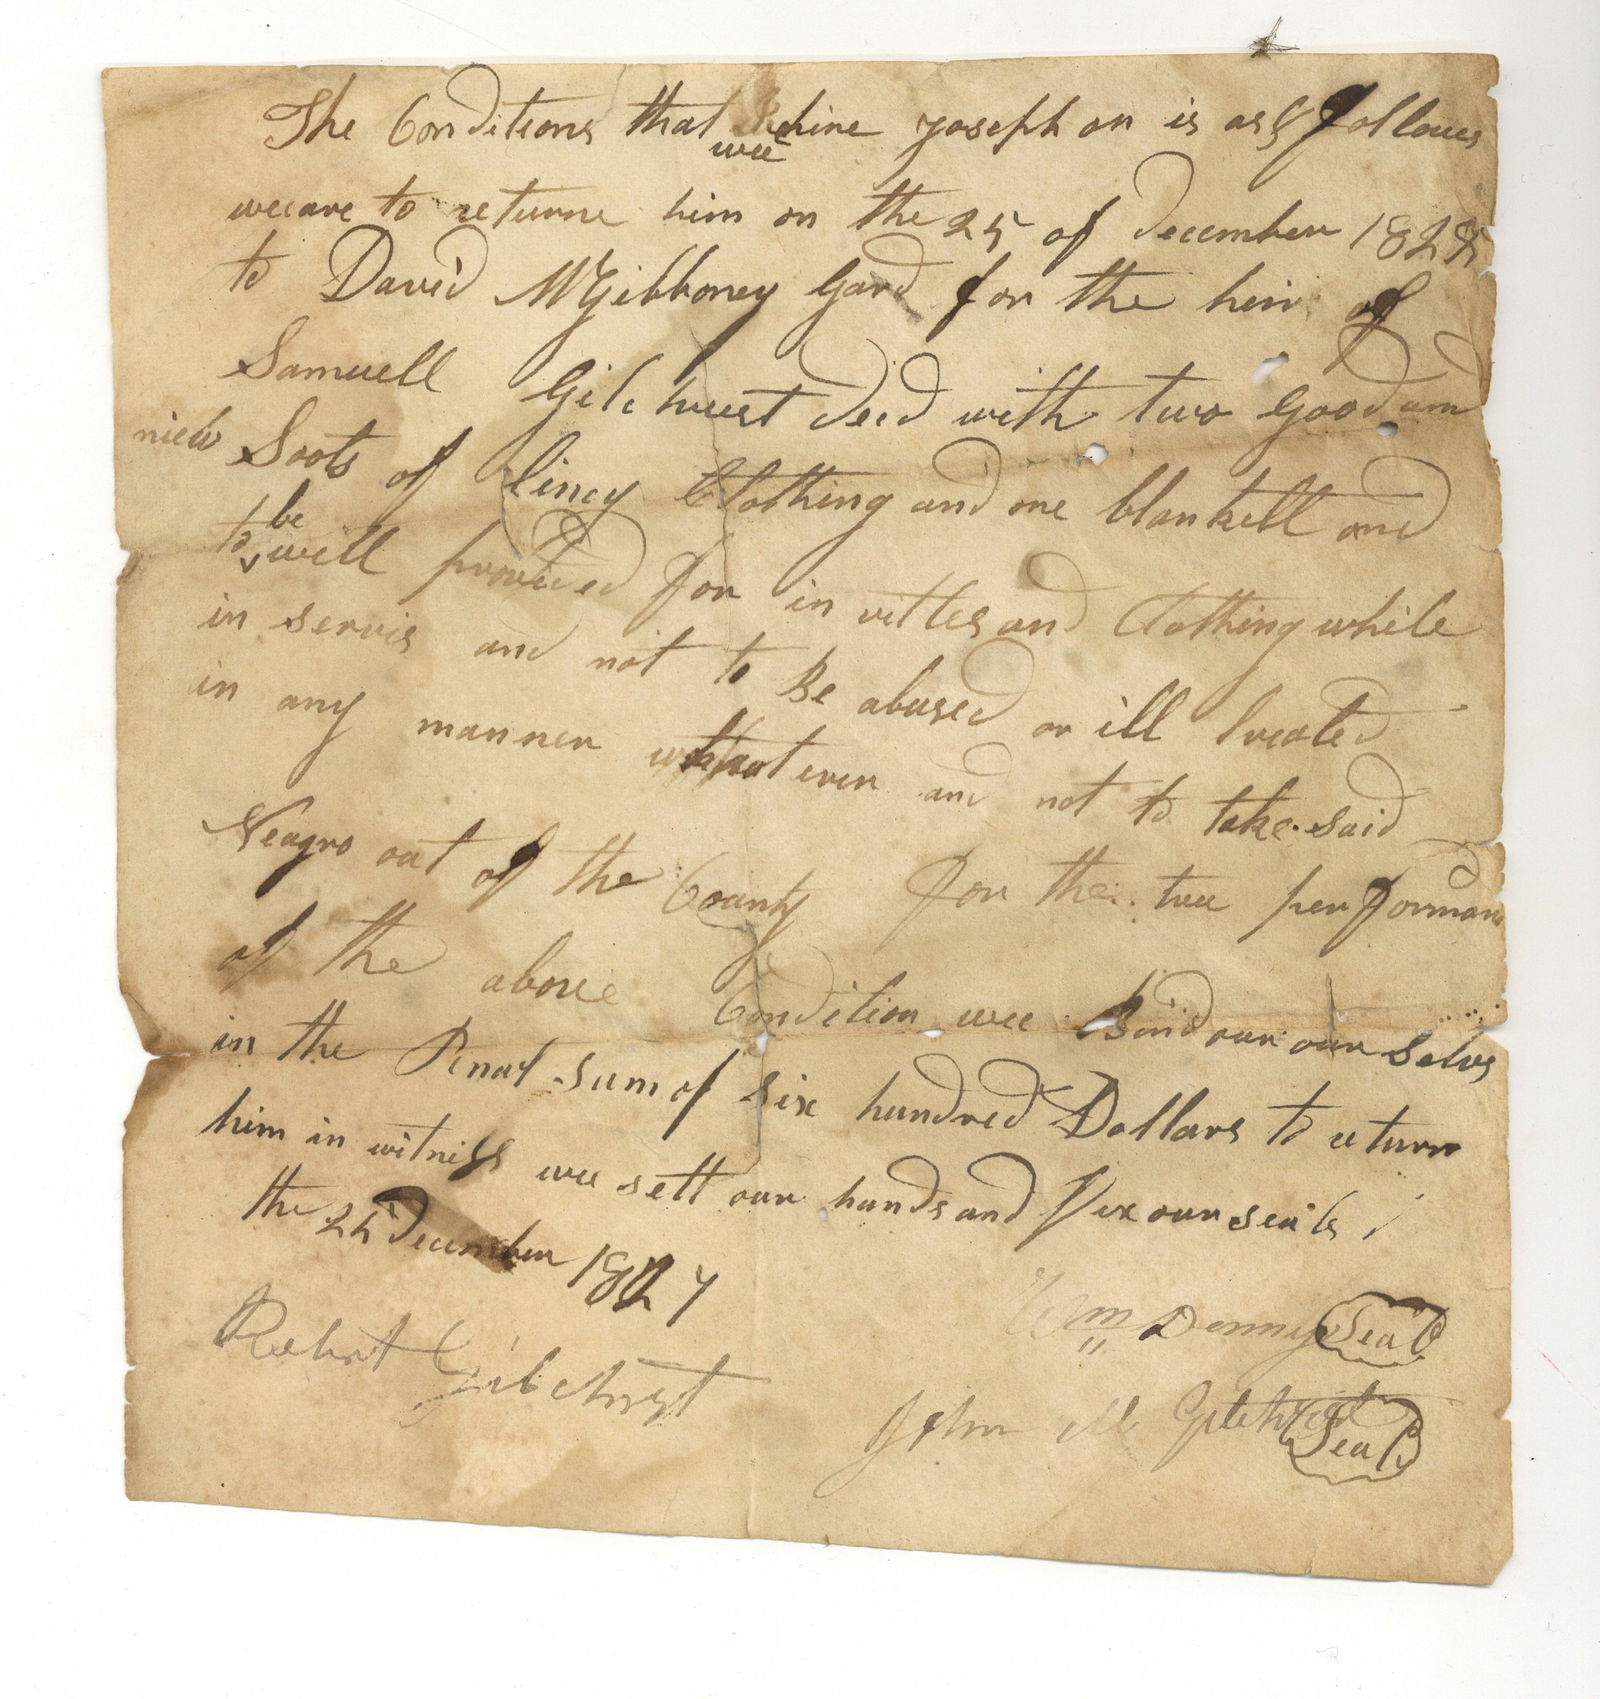 The Conditions that wee hire Joseph on is ass follows
wee are to returne him on the 25 of december 1828
to David McGibboney Gard for the heir of
Samuell Gilchreest deed with two good and
niew Soots of lincy Clothing and one blankett and
to be well provided for in vitles and Clothing while
in servis and not to Be abused or ill treated
in any manner whatever and not to take said
Neagro out of the County for the true performanc
of the above Condition wee Bind our our selvs
in the Penal sum of six hundred Dollars to return
him in witness wee sett our hands and fix our seals
the 25 December 1827
Wm Denny Seal
Robert Gilchrist
John M Gilchrist Seal